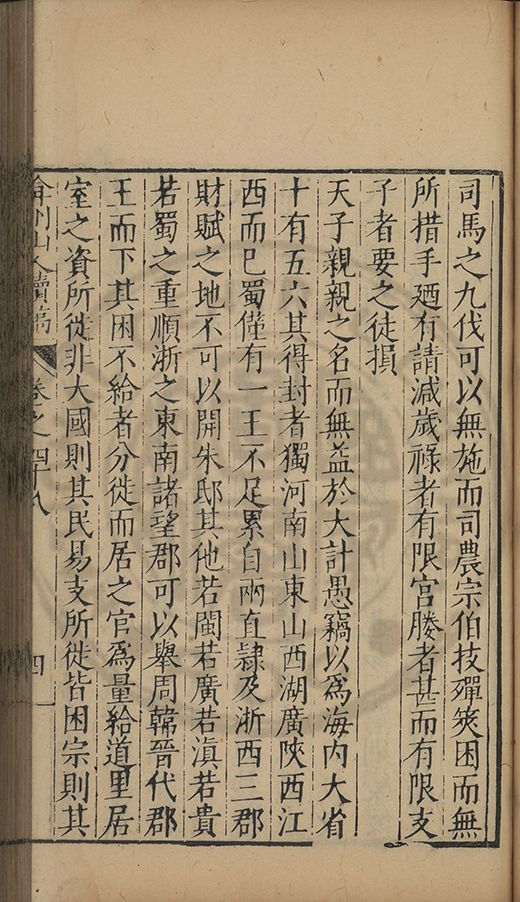 司馬之九伐可以無施而司農宗伯技殫筴困而無
所措手廼有請減歲祿者有限宮媵者甚而有限支
子者要之徒損
天子親親之名而無益於大計愚竊以為海內大省
十有五六其得封者獨河南山東山西湖廣陝西江
西而巴蜀僅有一王不足累自兩直隸及浙西三郡
財賦之地不可以開朱邸其他若閩若廣若滇若貴
若蜀之重順浙之東南諸望郡可以舉周韓晉代郡
王而下其困不給者分徙而居之官爲量給道里居
室之資所徙非大國則其民易支所徙皆困宗則其
弇州山人續稿 卷之四十八 四